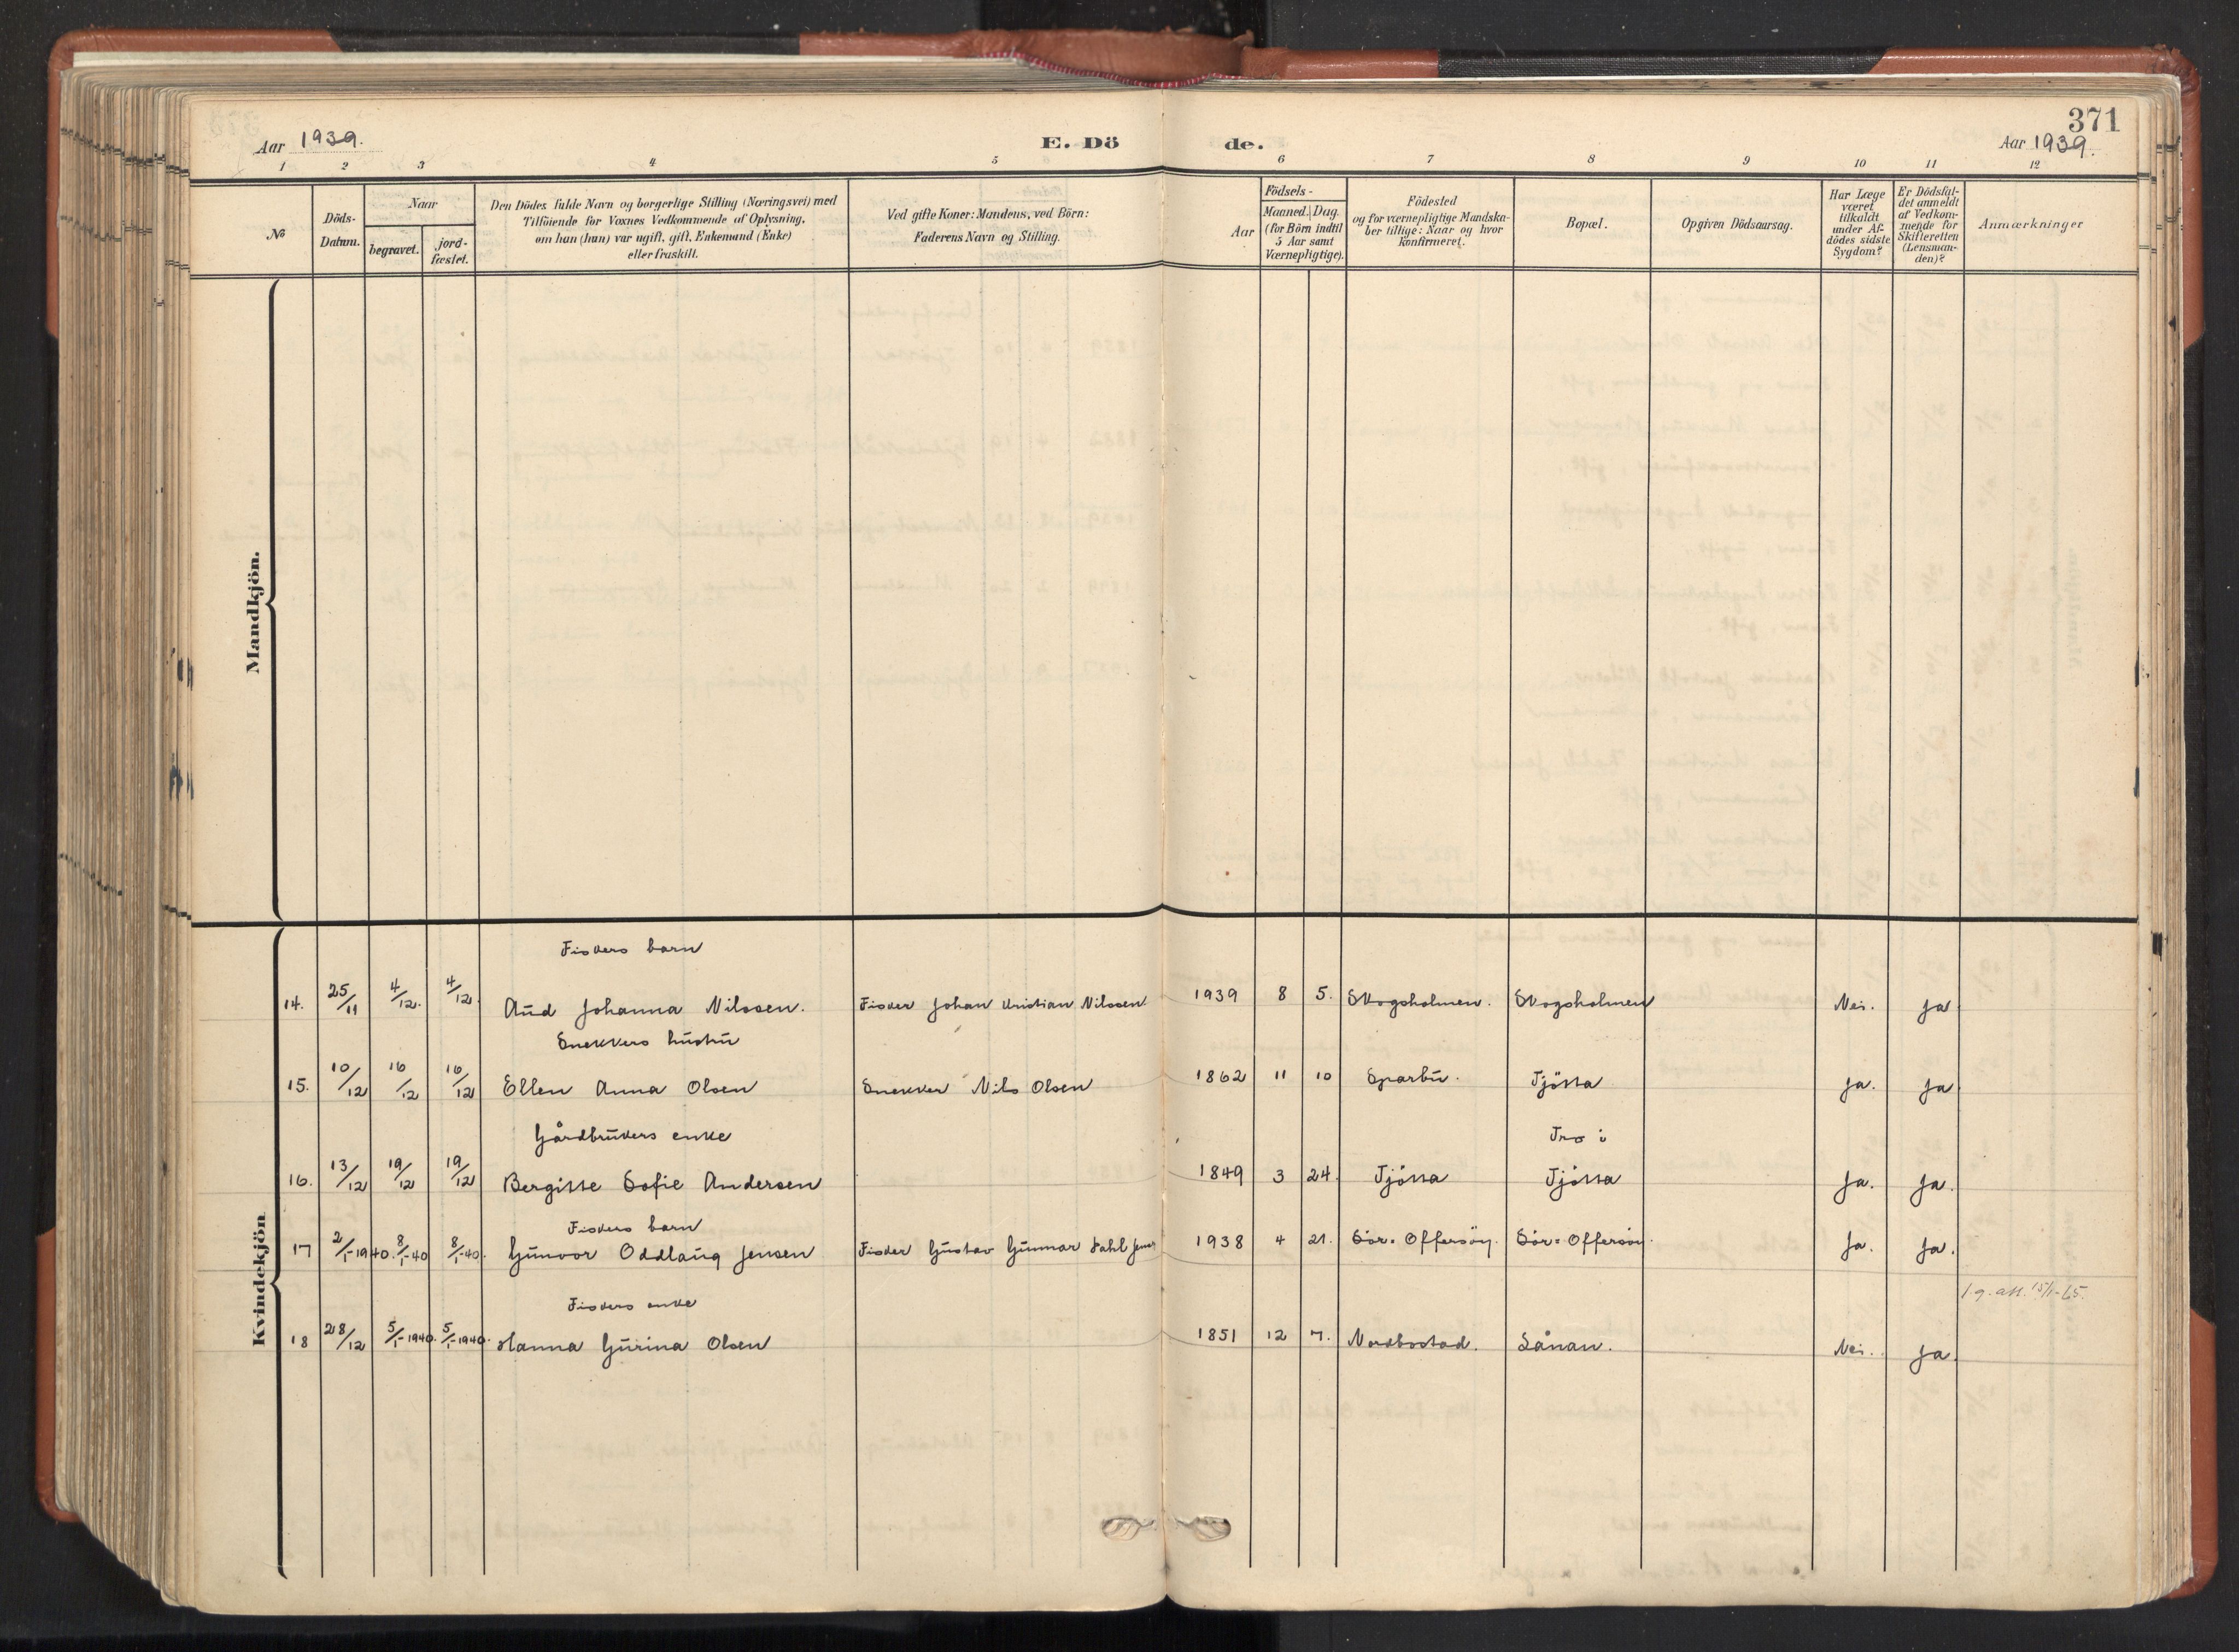 371
Aar 1939. E. Dö de. Aar 1939.
1 2 3 4 5 6 7 8 9 10 11 12
№
Döds-
Datum.
Naar
begravet.
jord-
fæstet.
Den Dödes fulde Navn og borgerlige Stilling (Næringsvei) med
Tilföiende for Voxnes Vedkommende af Oplysning,
om han (hun) var ugift, gift, Enkemand (Enke)
eller fraskilt.
Ved gifte Koner: Mandens, ved Börn:
Faderens Navn og Stilling.
Födsels-
Aar
Maaned. Dag.
(for Börn indtil
5 Aar samt
Værnepligtige).
Födested
og for værnepligtige Mandska-
ber tillige: Naar og hvor
konfirmeret.
Bopæl.
Opgiven Dödsaarsag.
Har Læge
været
tilkaldt
under Af-
dödes sidste
Sygdom?
Er Dödsfal-
det anmeldt
af Vedkom-
mende for
Skifteretten
(Lensman-
den)?
Anmærkninger
Mandkjön.
Kvindekjön
Fiskers barn
14. 25/11 4/12. 4/12. Aud Johanna Nilssen. Fisker Johan Kristian Nilssen 1939 8 5. Skogsholmen. Skogsholmen Nei. Ja.
Snekkers hustru
15. 10/12 16/12 16/12 Ellen Anna Olsen Snekker Nils Olsen 1862 11 10 Sparbu. Tjötta Ja. Ja.
Gårdbrukers enke Tro i
16. 13/12 19/12 19/12 Bergitte Sofie Andersen 1849 3 24. Tjötta Tjötta Ja. Ja.
Fiskers barn
17 2/1-1940. 8/1-40 8/1-40. Gunvor Oddlaug Jensen Fisker Gustav Gunnar Dahl Jensen 1938 4 21. Sör-Offersöy. Sör-Offersöy. Ja. Ja.
Fiskers enke 1 g. att. 15/1-65.
18 28/12 5/1-1940. 5/1-1940. Hanna Gurina Olsen 1851 12 7. Nordbostad. Lånan. Nei. Ja.